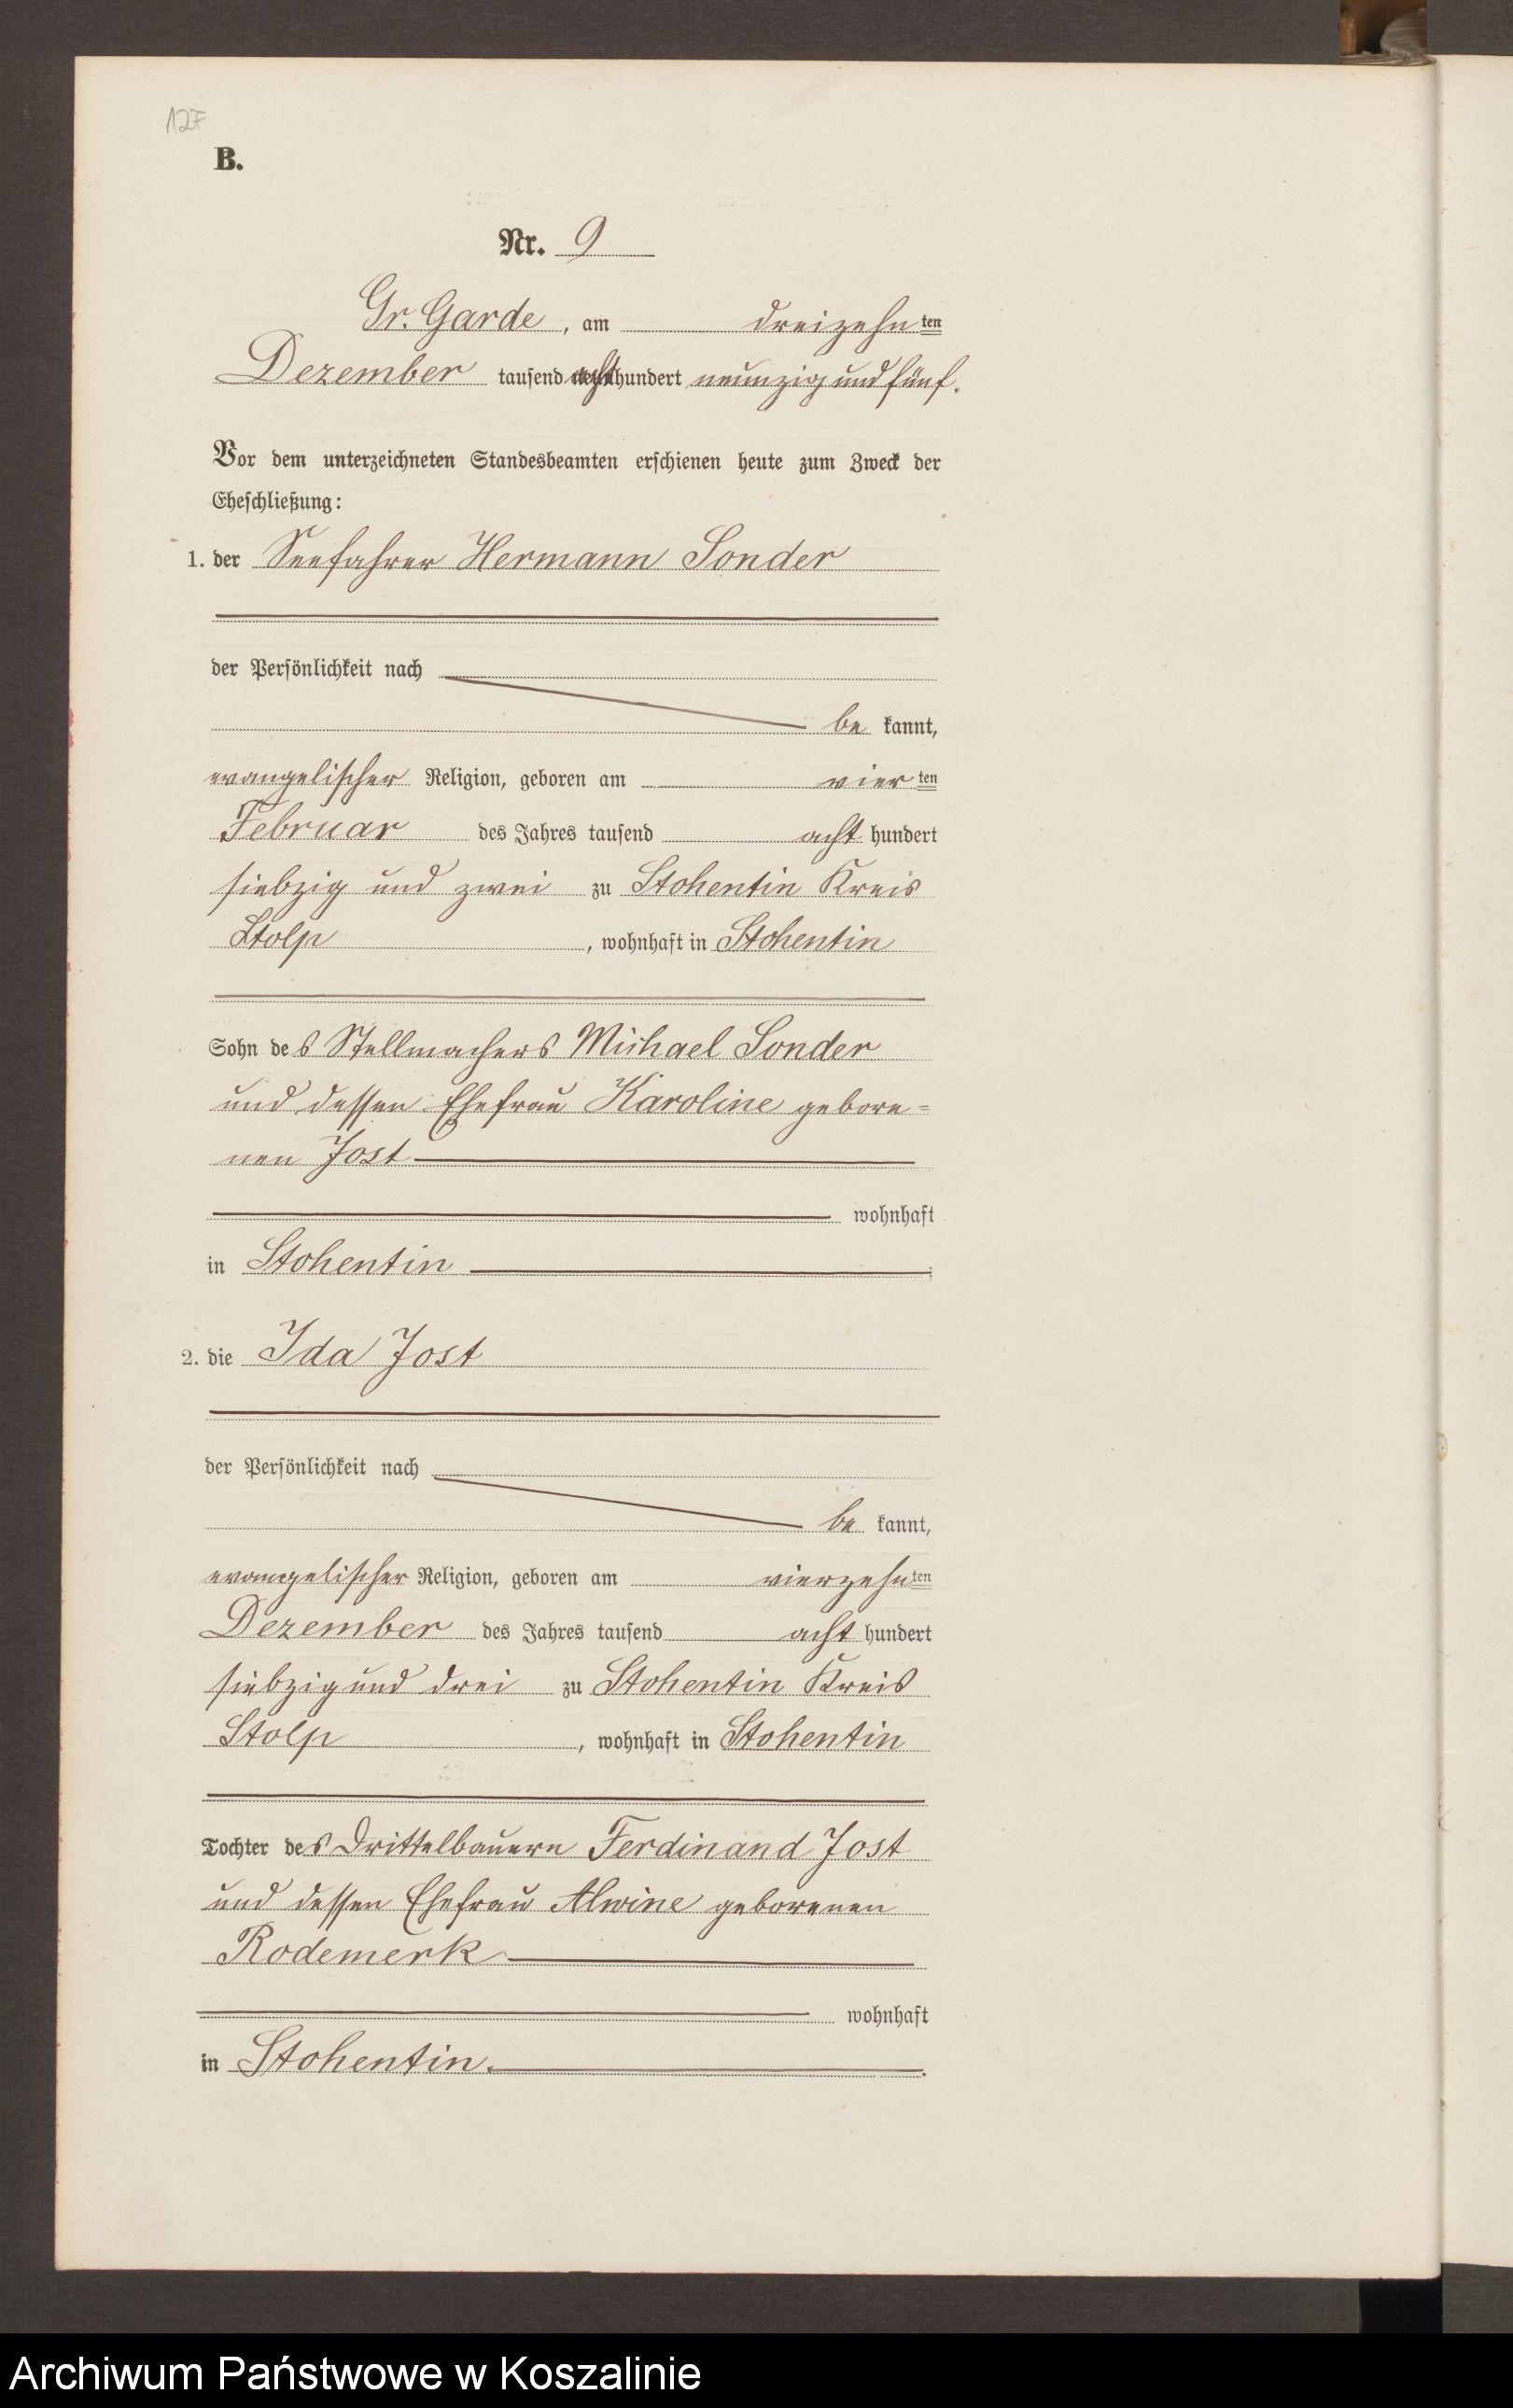 127
B.
Nr. 9
Gr. Garde, am dreizehnten
Dezember tausend achthundert neunzig und fünf.
Vor dem unterzeichneten Standesbeamten erschienen heute zum Zweck der
Eheschließung:
1. der Seefahrer Hermann Sonder
der Persönlichkeit nach
be kannt,
evangelischer Religion, geboren am vierten
Februar des Jahres tausend acht hundert
siebzig und zwei zu Stohentin Kreis
Stolp, wohnhaft in Stohentin
Sohn des Stellmachers Michael Sonder
und dessen Ehefrau Karoline gebore=
nen Jost
wohnhaft
in Stohentin;
2. die Ida Jost
der Persönlichkeit nach
be kannt,
evangelischer Religion, geboren am vierzehnten
Dezember des Jahres tausend acht hundert
siebzig und drei zu Stohentin Kreis
Stolp, wohnhaft in Stohentin
Tochter des Drittelbauern Ferdinand Jost
und dessen Ehefrau Alwine geborenen
Rodemerk
wohnhaft
in Stohentin.
Archiwum Państwowe w Koszalinie